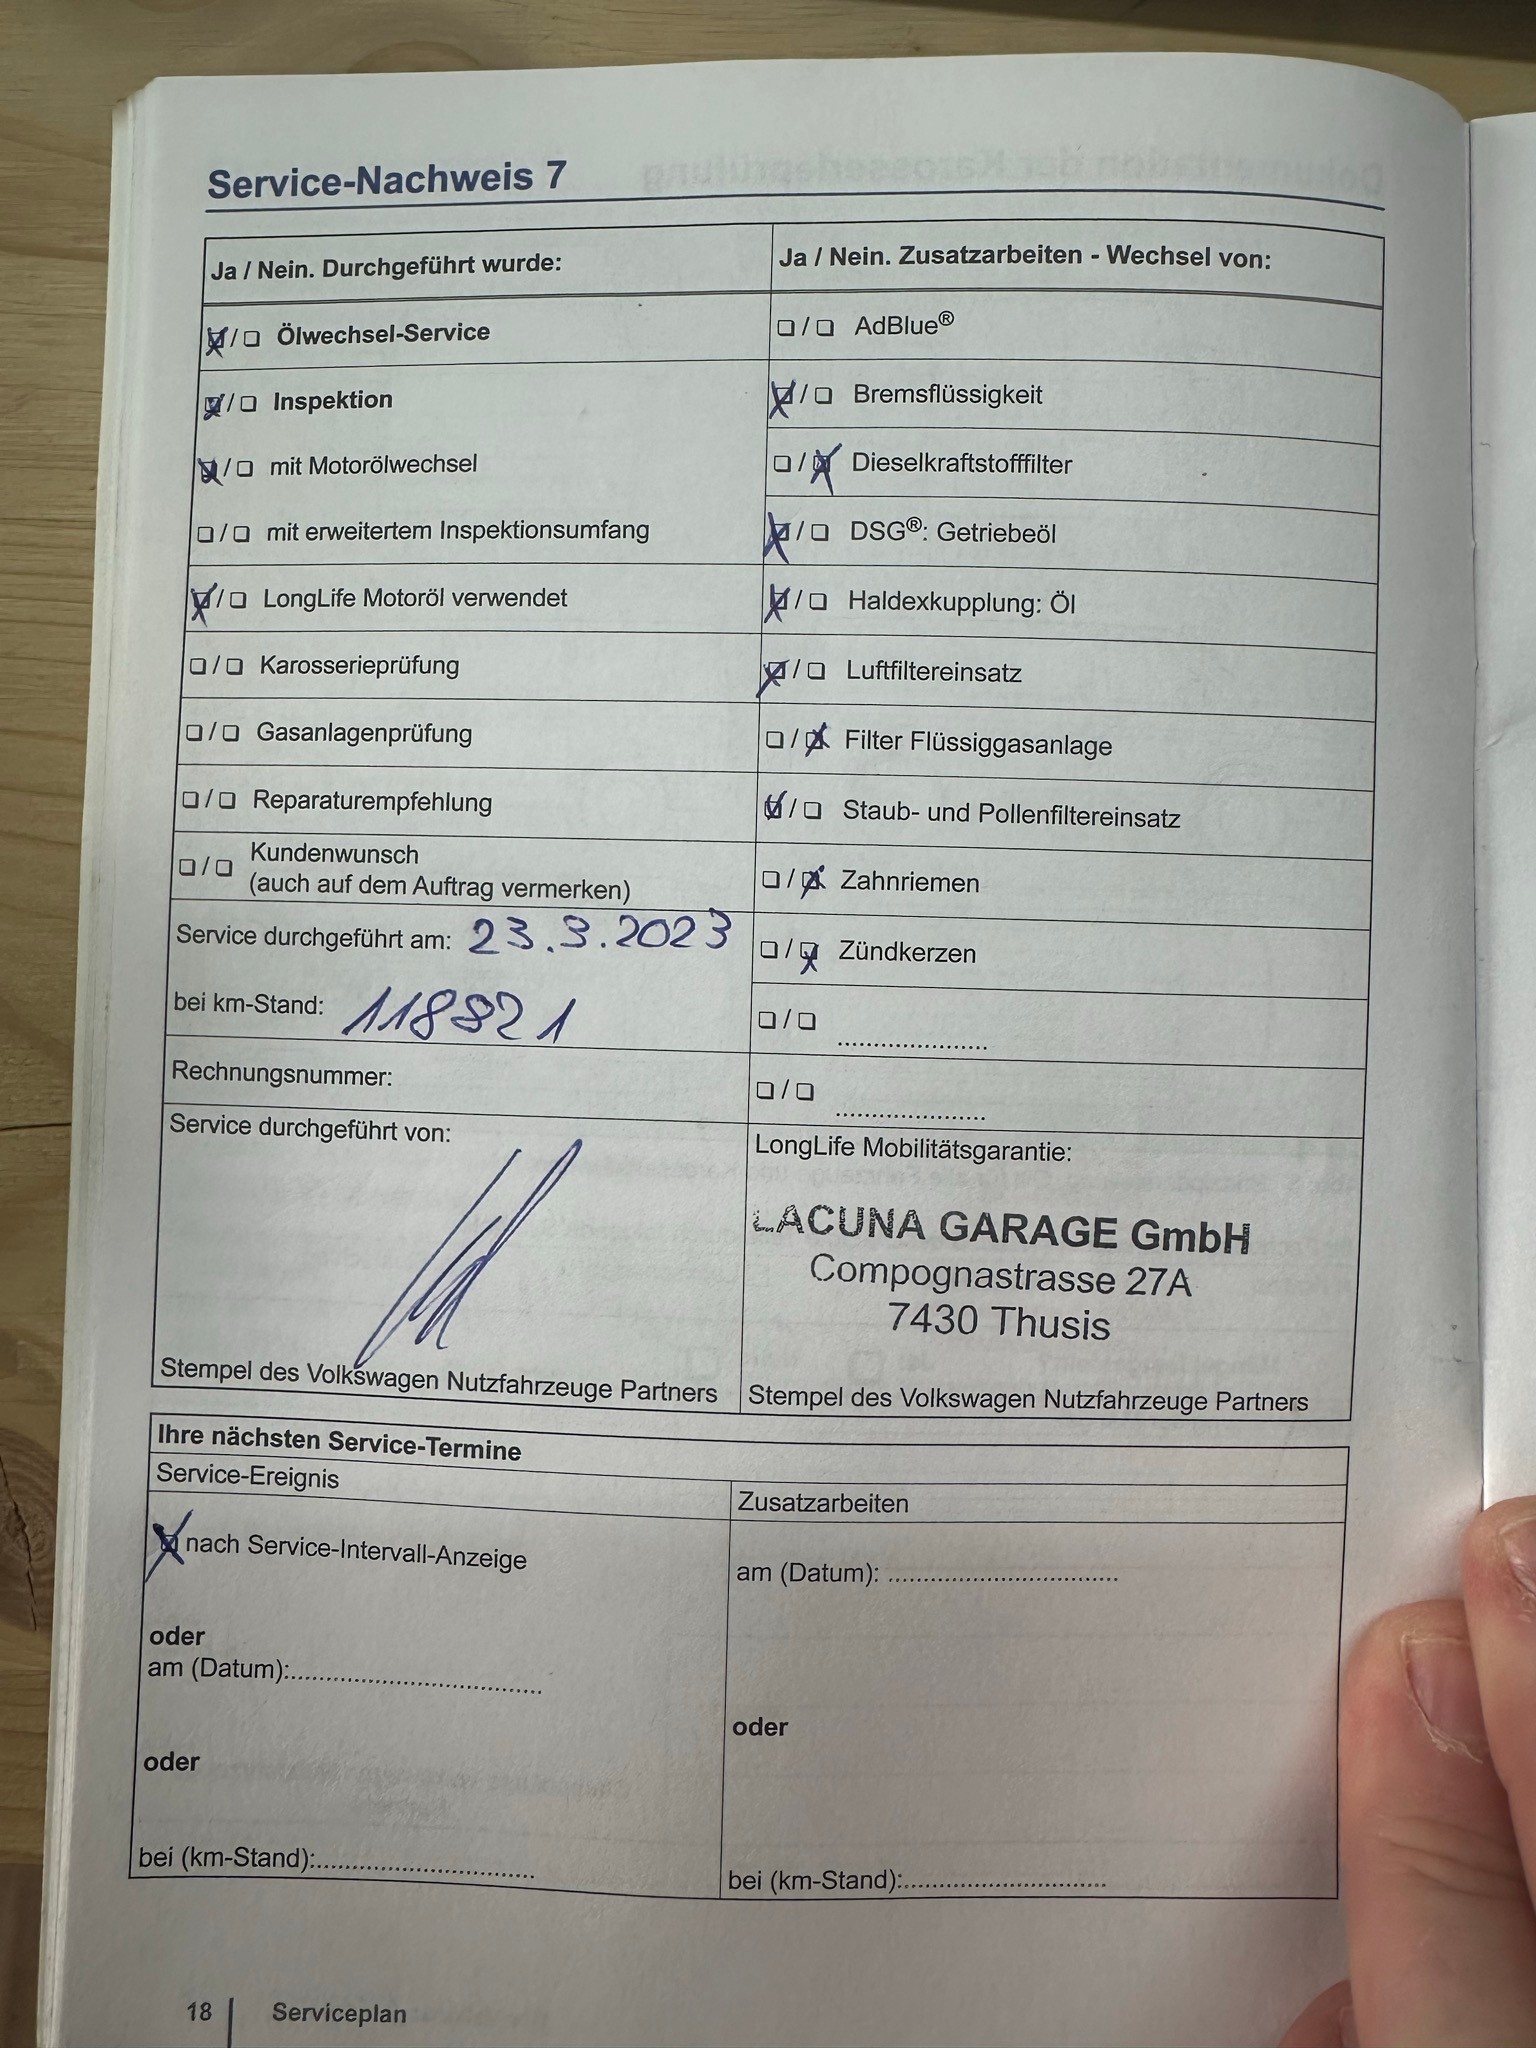 Service-Nachweis 7
Ja / Nein. Durchgeführt wurde:
☒/☐ Ölwechsel-Service
☒/☐ Inspektion
☒/☐ mit Motorölwechsel
☐/☐ mit erweitertem Inspektionsumfang
☒/☐ LongLife Motoröl verwendet
☐/☐ Karosserieprüfung
☐/☐ Gasanlagenprüfung
☐/☐ Reparaturempfehlung
☐/☐ Kundenwunsch
(auch auf dem Auftrag vermerken)
Service durchgeführt am: 23.3.2023
bei km-Stand: 118821
Rechnungsnummer:
Service durchgeführt von:
Stempel des Volkswagen Nutzfahrzeuge Partners
Ja / Nein. Zusatzarbeiten - Wechsel von:
☐/☐ AdBlue®
☒/☐ Bremsflüssigkeit
☐/☒ Dieselkraftstofffilter
☒/☐ DSG®: Getriebeöl
☒/☐ Haldexkupplung: Öl
☒/☐ Luftfiltereinsatz
☐/☒ Filter Flüssiggasanlage
☒/☐ Staub- und Pollenfiltereinsatz
☐/☒ Zahnriemen
☐/☒ Zündkerzen
☐/☐ ......................
☐/☐ ......................
LongLife Mobilitätsgarantie:
LACUNA GARAGE GmbH
Compognastrasse 27A
7430 Thusis
Stempel des Volkswagen Nutzfahrzeuge Partners
Ihre nächsten Service-Termine
Service-Ereignis
☒ nach Service-Intervall-Anzeige
oder
am (Datum):......................
oder
bei (km-Stand):......................
Zusatzarbeiten
am (Datum): ......................
oder
bei (km-Stand):......................
18 | Serviceplan